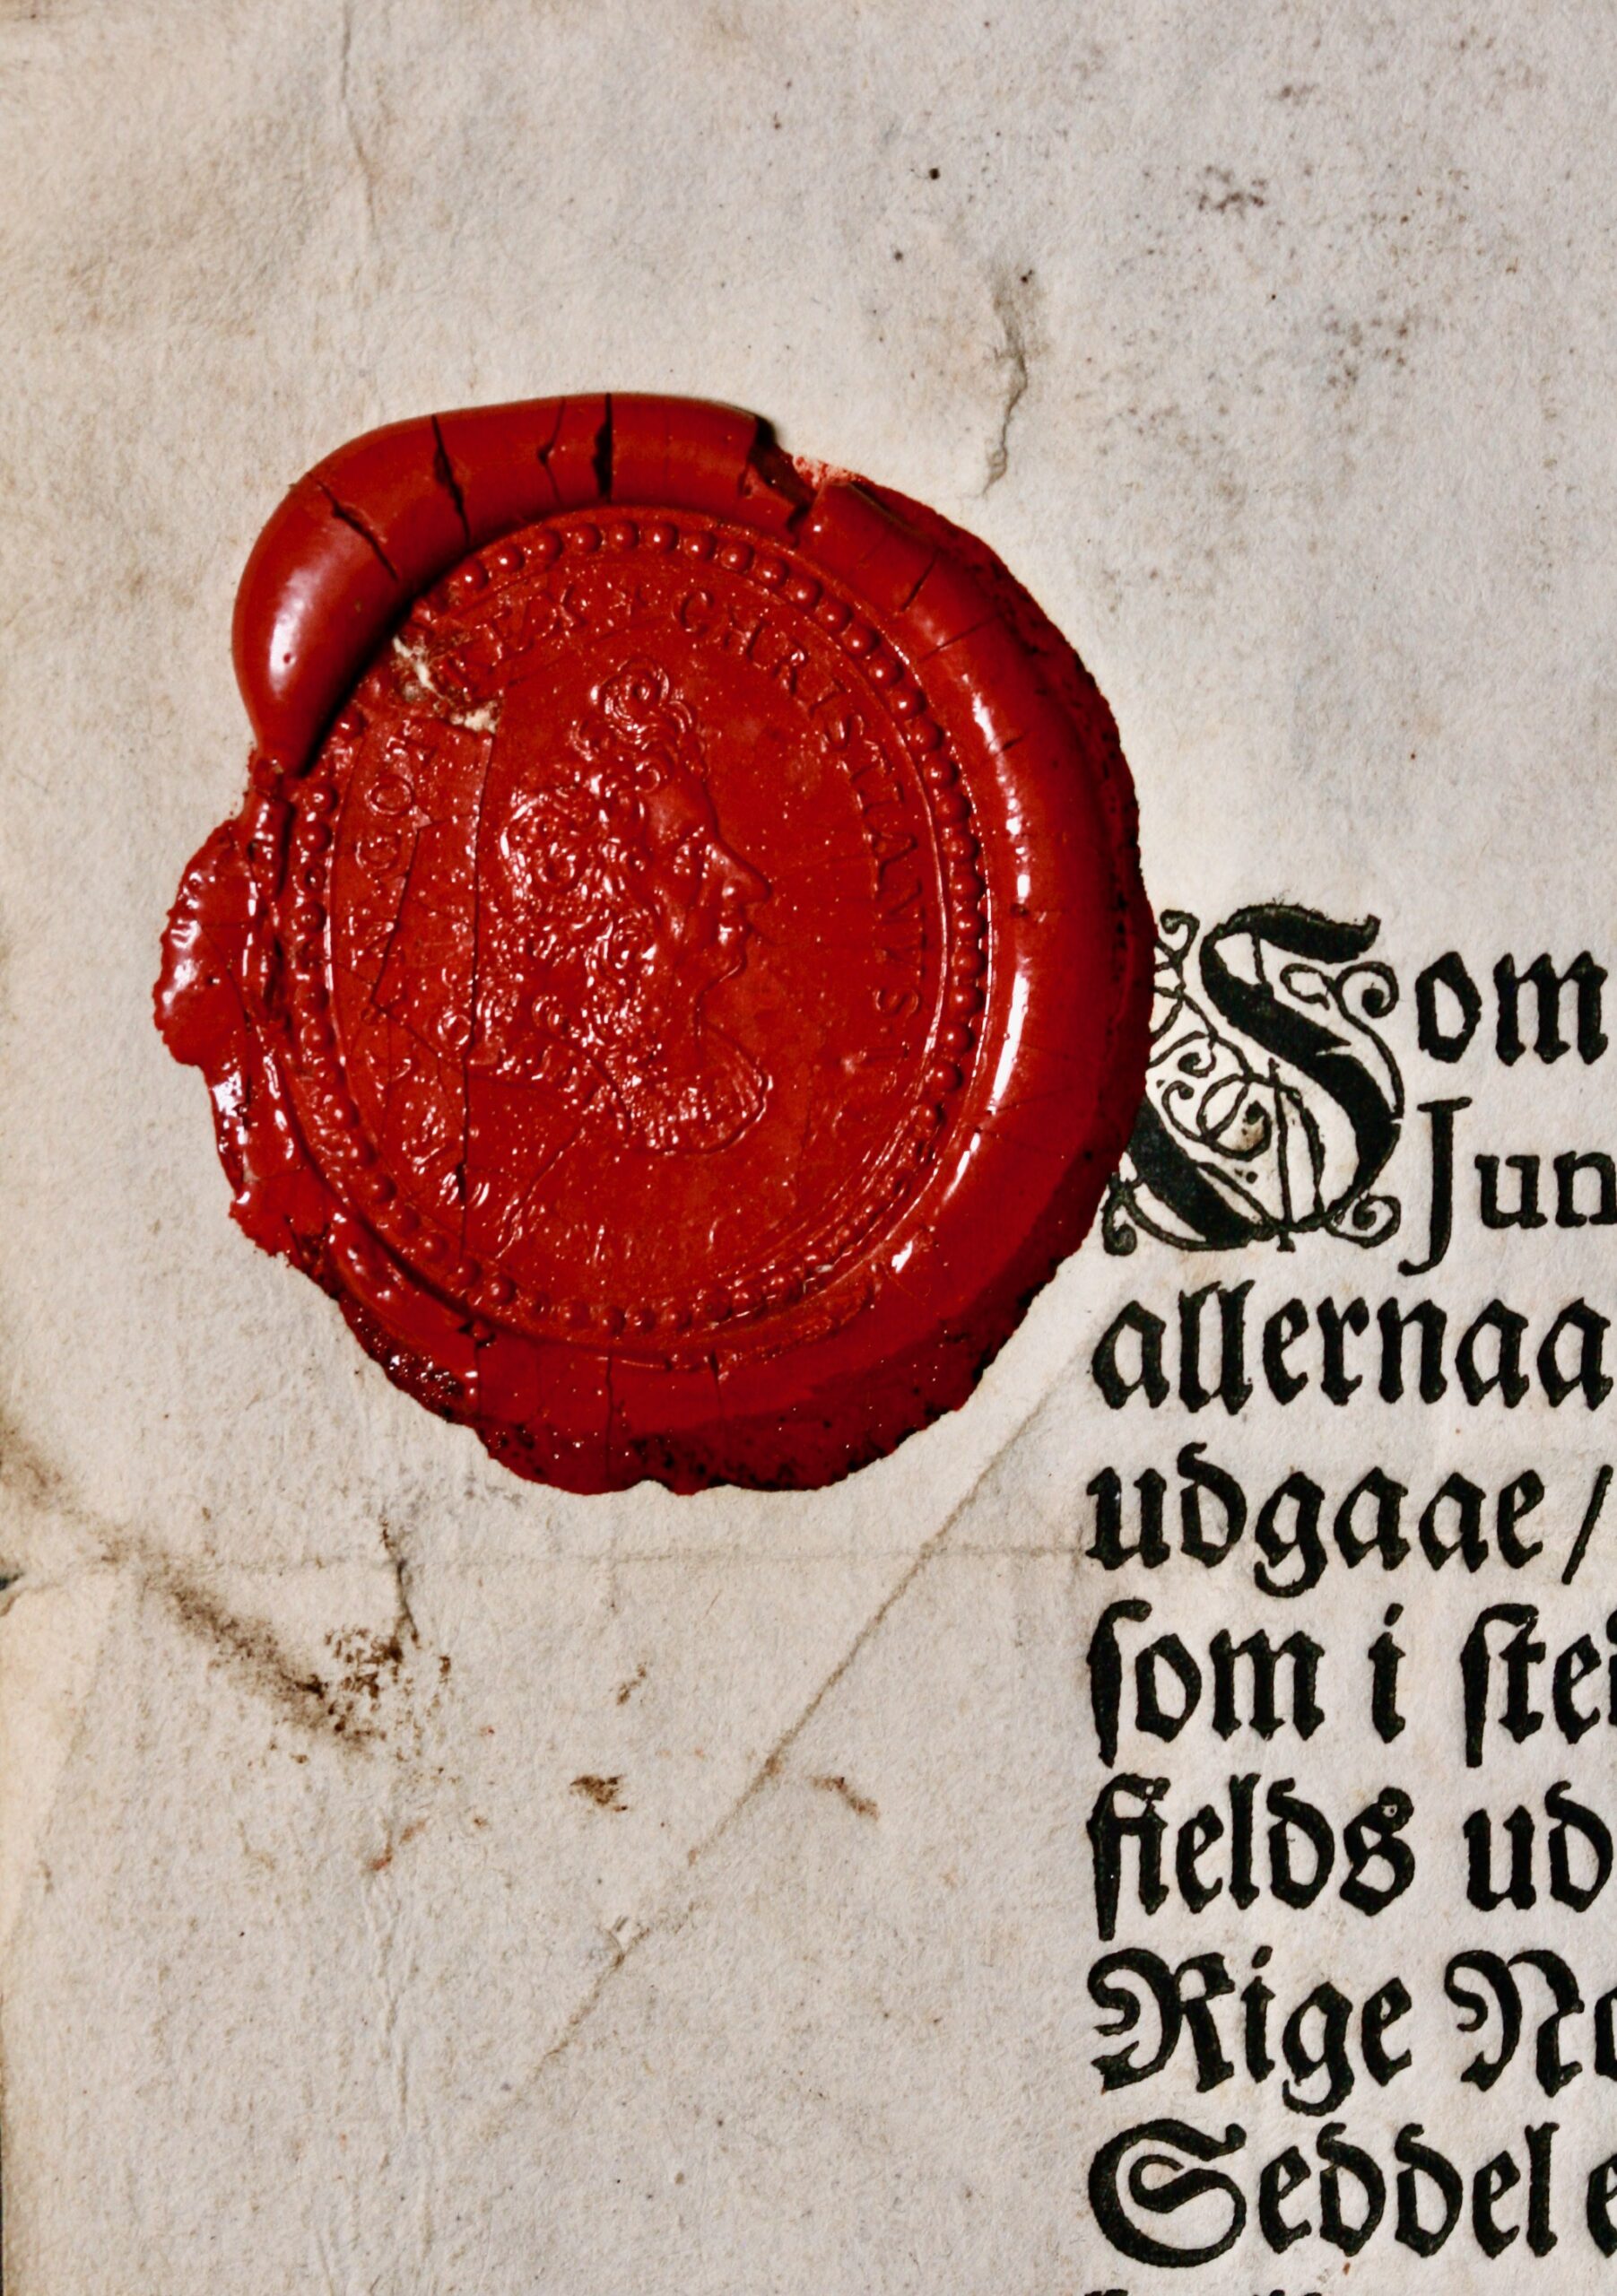 CHRISTIANVS
Som
Jun
allernaa
udgaae/
ſom i ſted
fields ud
Rige No
Seddel e